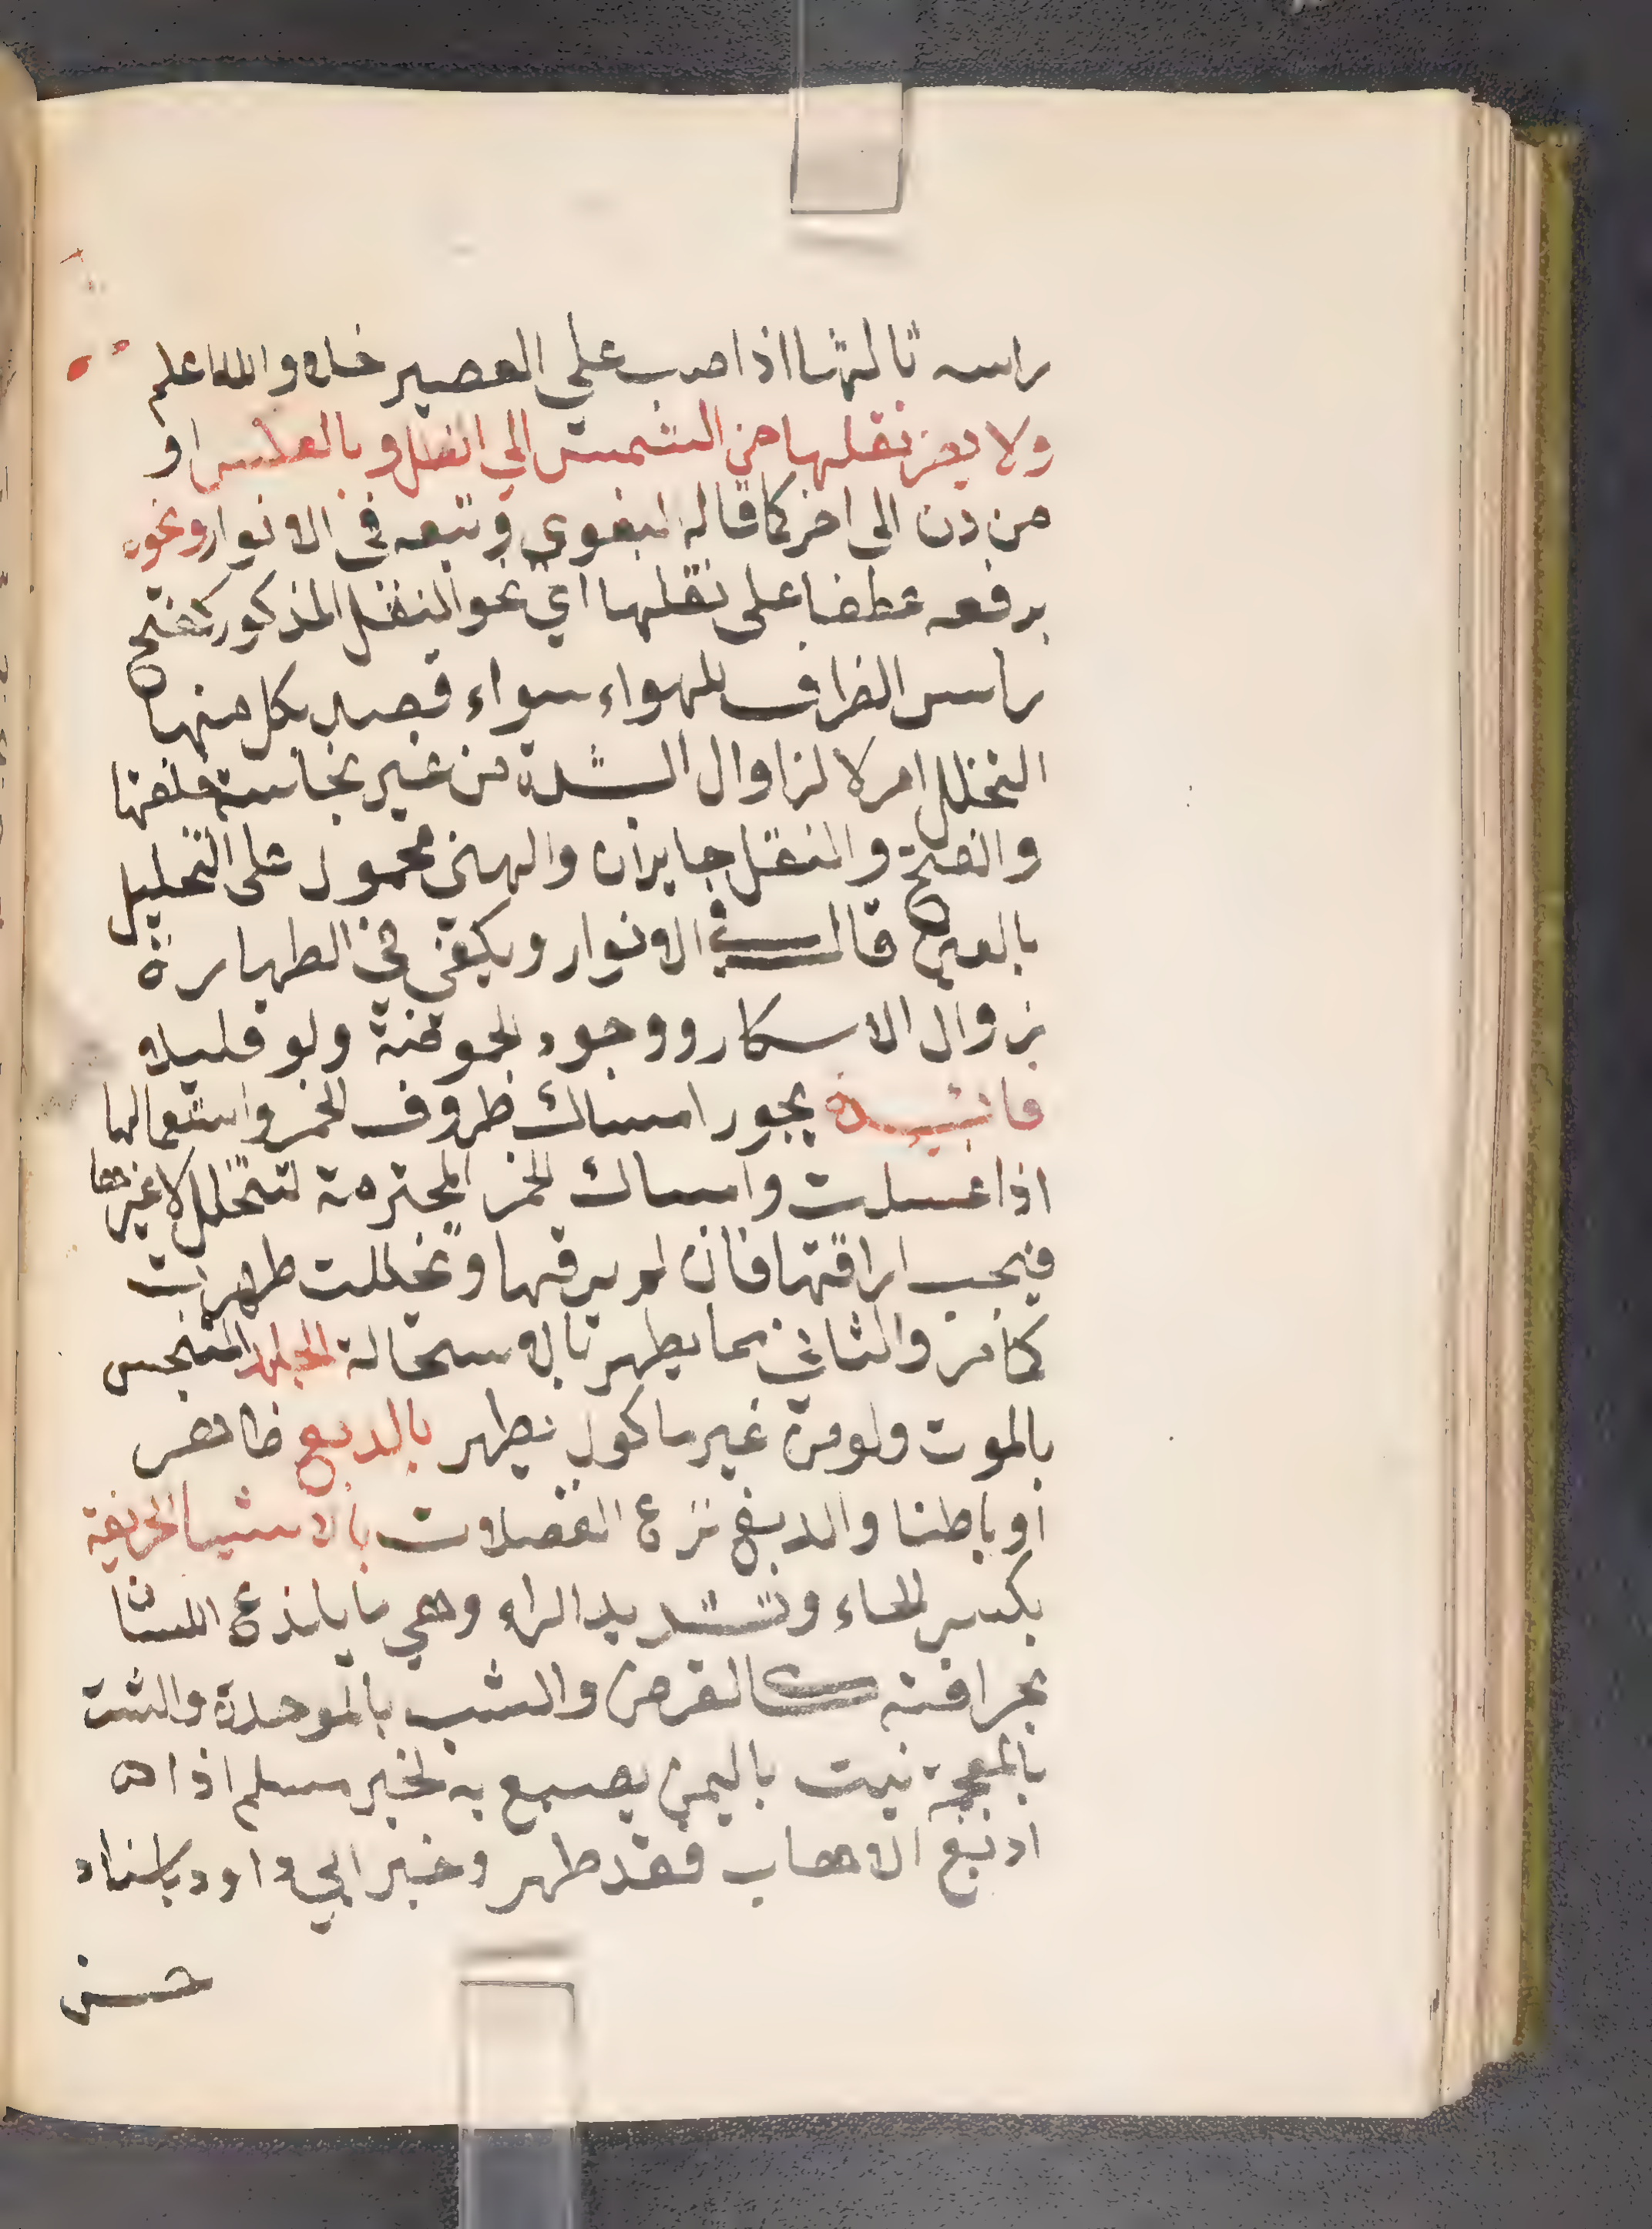 راسه ثالثها اذا صب على العصير خلا والله اعلم
ولا يضر نقلها من الشمس الى الظل وبالعكس او
من دن الى اخر كما قاله البغوي وتبعه في الانوار ونحوه
برفعه عطفا على نقلها اي نحو النقل المذكور كفتح
راس الظرف للهواء سواء قصد بكل منهما
التخلل ام لا لزاوال الشدة من غير نجاسة خلفتها
والفتح والنقل جايزان والنهي محمول على التخليل
بالعين قال في الانوار ويكفي في الطهارة
زوال الاسكار ووجود الحموضة ولو قليلا
فائدة يجوز امساك ظروف الخمر واستعمالها
اذا غسلت وامساك الخمر المحترمة لتتخلل لا غيرها
فيجب اراقتها فان لم يرقها وتخللت طهرت
كما مر والثاني مما يطهر بالاستحالة الجلد المتنجس
بالموت ولو من غير ماكول يطهر بالدبغ ظاهر
او باطنا والدبغ نزع الفضلات بالاشيا الحريفة
بكسر الحاء وتشديد الراء وهي ما يلذع اللسان
بحرافته كالقرض والشب بالموحدة والشث
بالمعجمة نبت باليمن يصبع به لخبر مسلم اذا
ادبغ الاهاب فقد طهر وخبر ابي داود باسناد
حسن